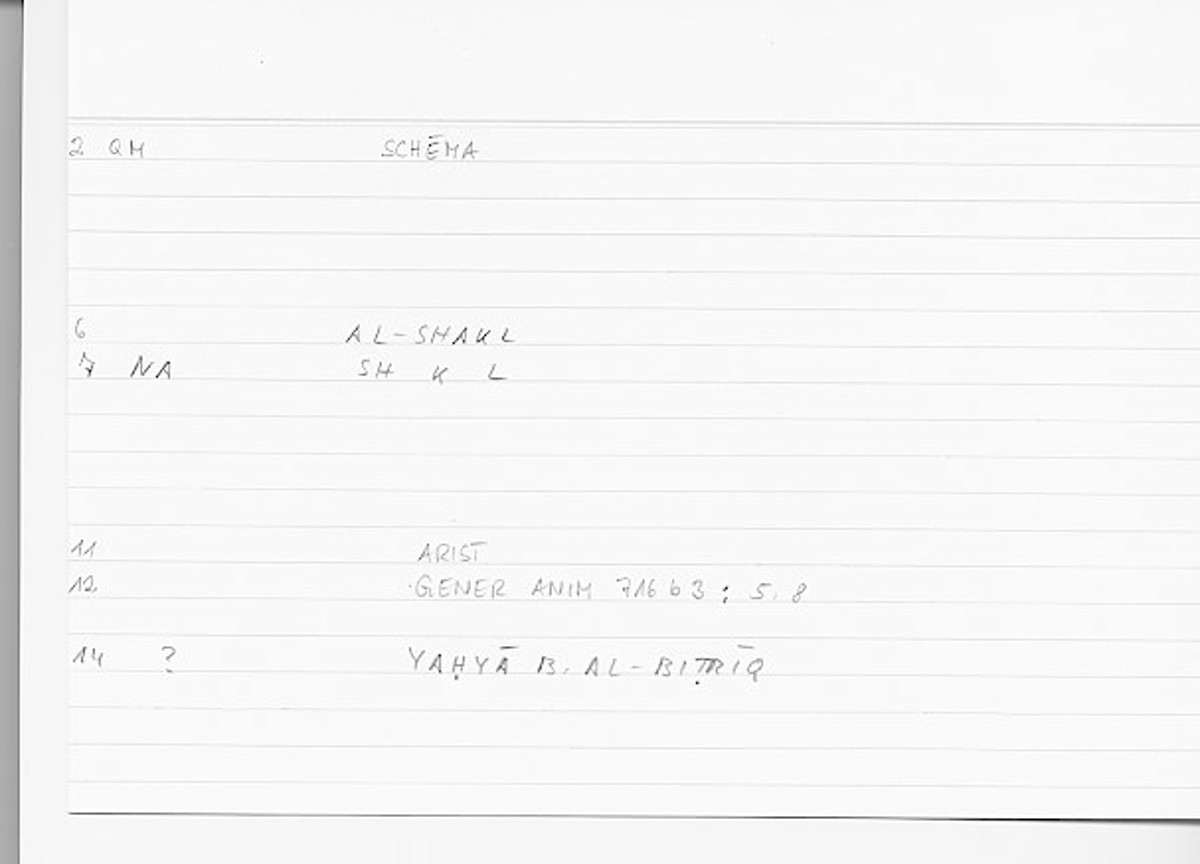 2 QM SCHĒMA
6 AL-SHAKL
7 NA SH K L
11 ARIST
12 GENER ANIM 716 b 3 ; 5, 8
14 ? YAḤYĀ B. AL-BIṬRĪQ